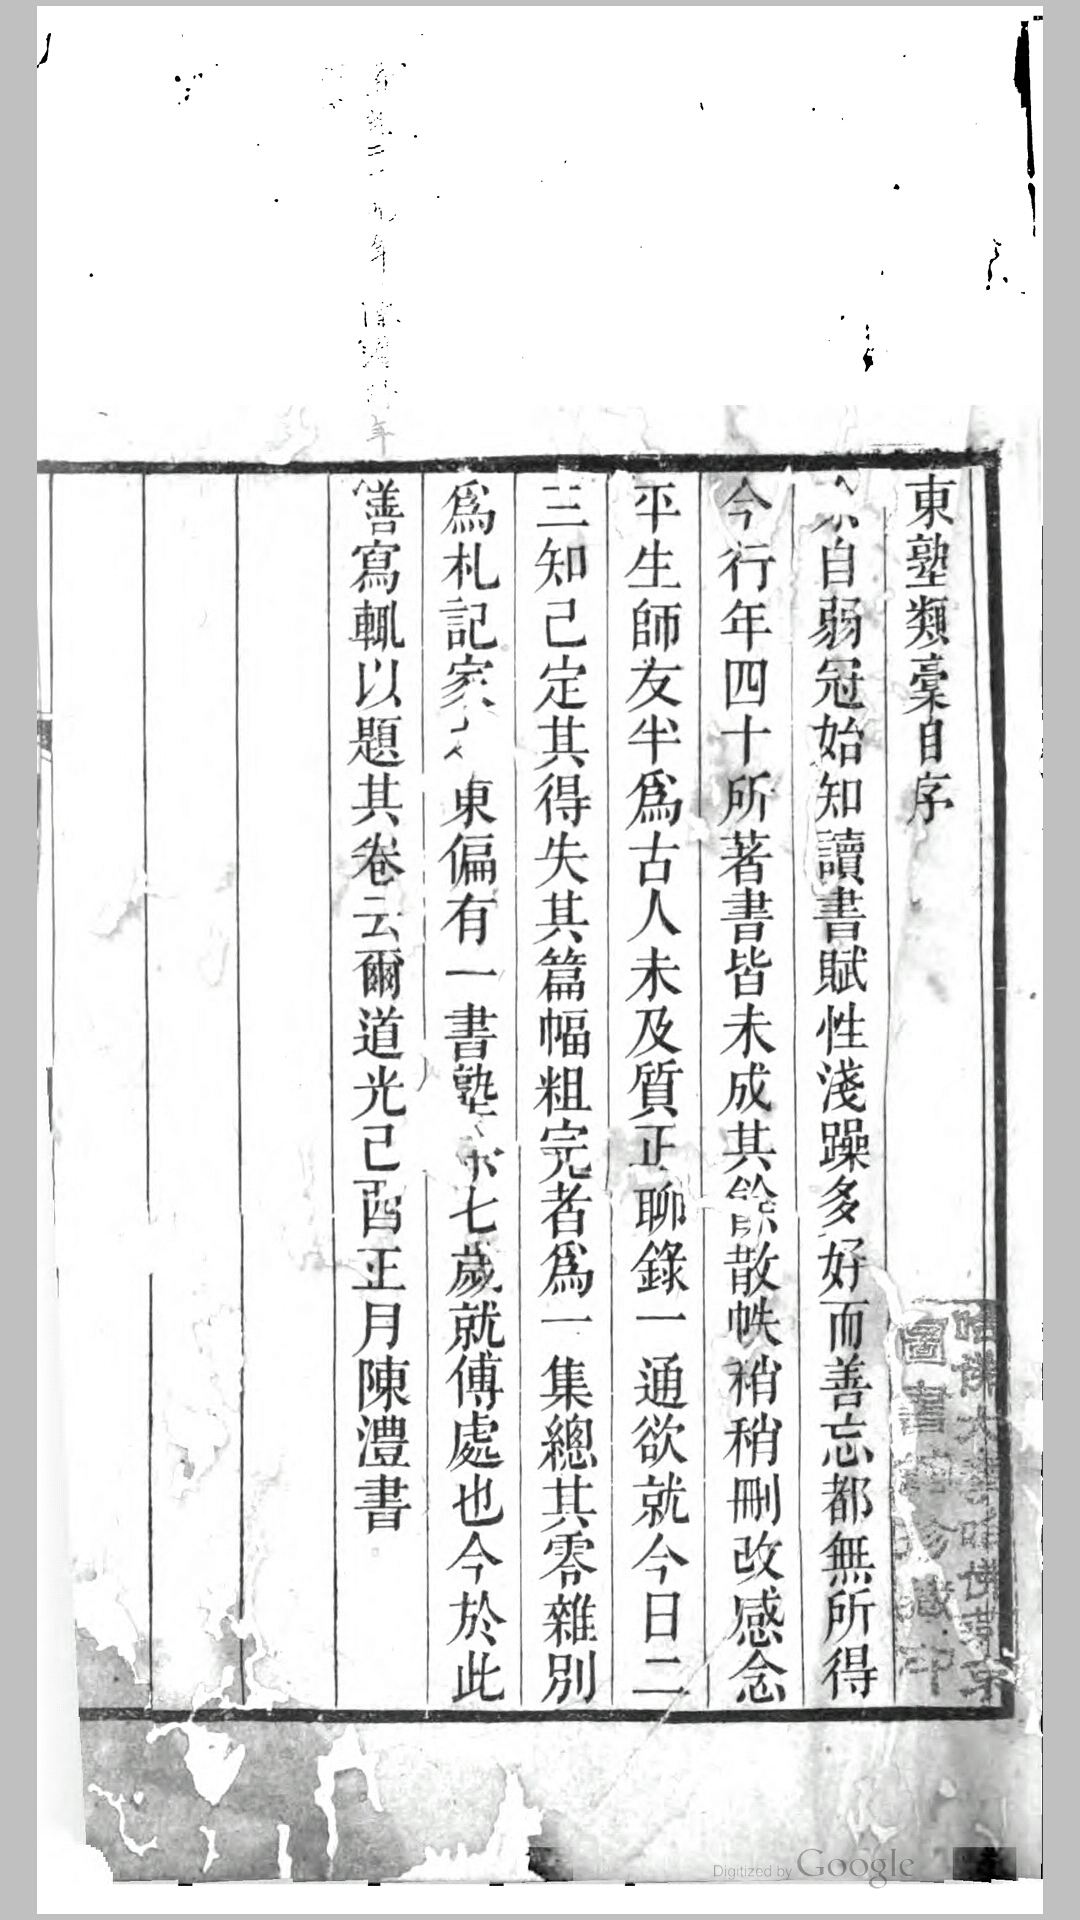 東塾類稾自序
自弱冠始知讀書賦性淺躁多好而善忘都無所得
今行年四十所著書皆未成其餘散帙稍稍刪改感念
平生師友半爲古人未及質正聊錄一通欲就今日二
三知己定其得失其篇幅粗完者爲一集總其零雜別
爲札記家 東偏有一書塾 七歲就傅處也今於此
繕寫輒以題其卷云爾道光己酉正月陳澧書
哈佛大學哈佛燕京
圖書館珍藏印
Digitized by Google